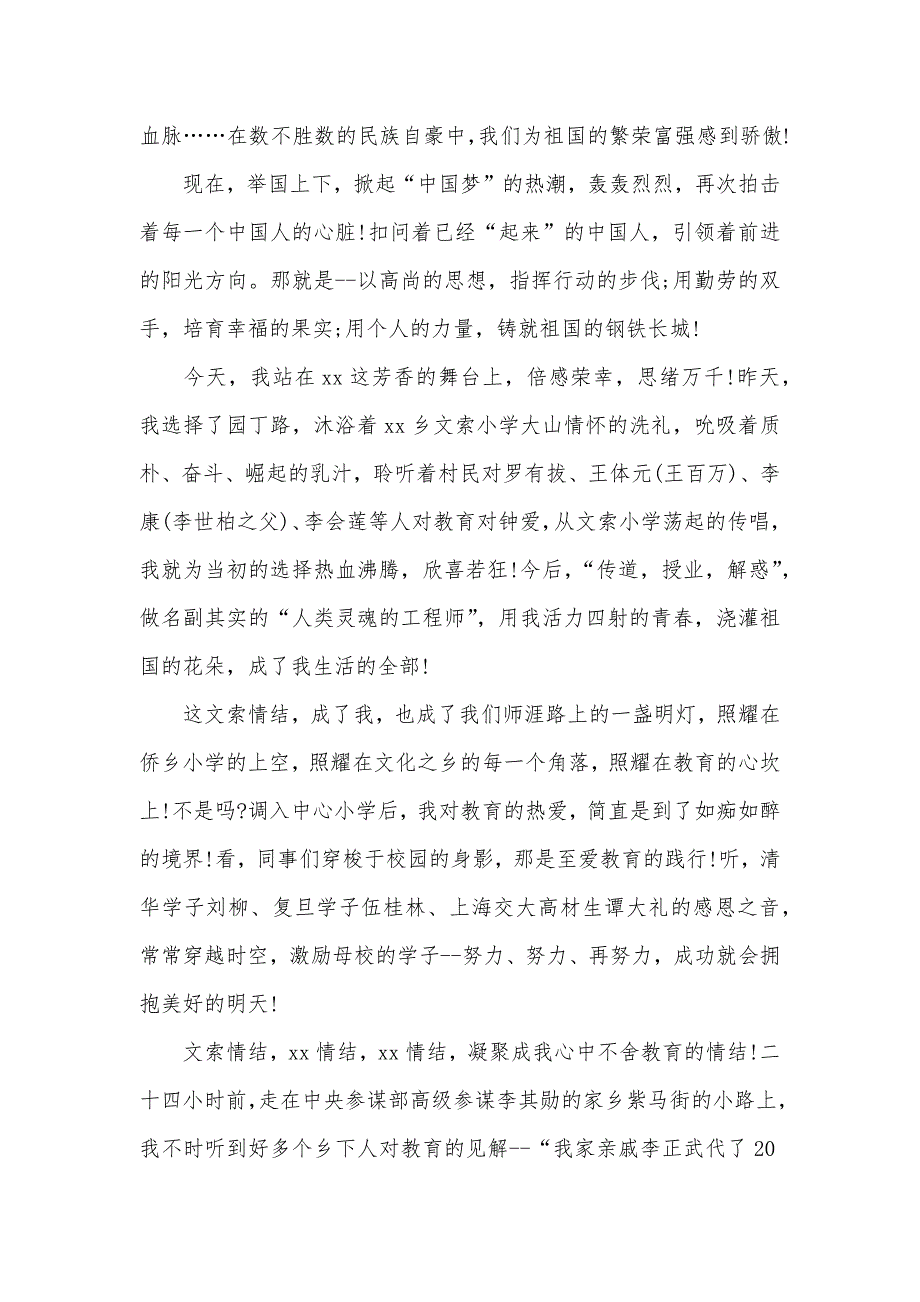 血脉……在数不胜数的民族自豪中,我们为祖国的繁荣富强感到骄傲!
现在，举国上下，掀起“中国梦”的热潮，轰轰烈烈，再次拍击
着每一个中国人的心脏!扣问着已经“起来”的中国人，引领着前进
的阳光方向。那就是--以高尚的思想，指挥行动的步伐;用勤劳的双
手，培育幸福的果实;用个人的力量，铸就祖国的钢铁长城!
今天，我站在 xx 这芳香的舞台上，倍感荣幸，思绪万千!昨天，
我选择了园丁路，沐浴着 xx 乡文索小学大山情怀的洗礼，吮吸着质
朴、奋斗、崛起的乳汁，聆听着村民对罗有拔、王体元(王百万)、李
康(李世柏之父)、李会莲等人对教育对钟爱，从文索小学荡起的传唱，
我就为当初的选择热血沸腾，欣喜若狂!今后，“传道，授业，解惑”，
做名副其实的“人类灵魂的工程师”，用我活力四射的青春，浇灌祖
国的花朵，成了我生活的全部!
这文索情结，成了我，也成了我们师涯路上的一盏明灯，照耀在
侨乡小学的上空，照耀在文化之乡的每一个角落，照耀在教育的心坎
上!不是吗?调入中心小学后，我对教育的热爱，简直是到了如痴如醉
的境界!看，同事们穿梭于校园的身影，那是至爱教育的践行!听，清
华学子刘柳、复旦学子伍桂林、上海交大高材生谭大礼的感恩之音，
常常穿越时空，激励母校的学子--努力、努力、再努力，成功就会拥
抱美好的明天!
文索情结，xx 情结，xx 情结，凝聚成我心中不舍教育的情结!二
十四小时前，走在中央参谋部高级参谋李其勋的家乡紫马街的小路上，
我不时听到好多个乡下人对教育的见解--“我家亲戚李正武代了 20